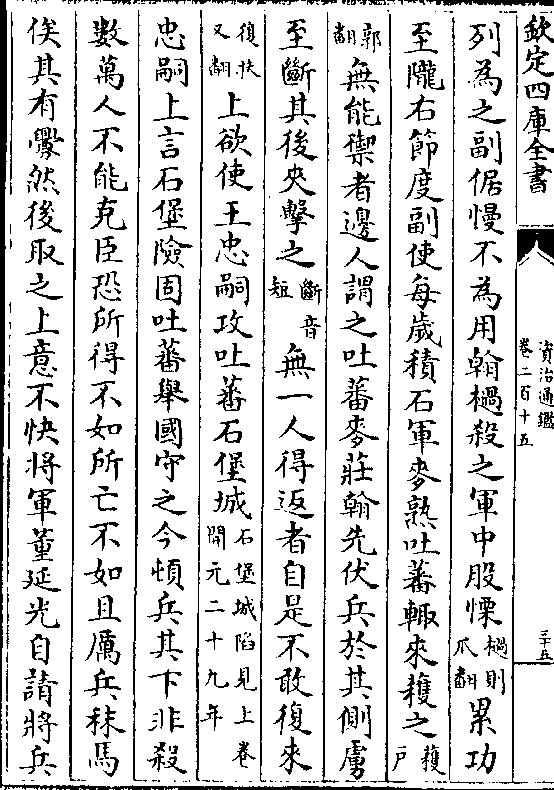 欽定四庫全書
資治通鑑
卷二百十五
三十五
列為之副倨慢不為用翰檛殺之軍中股慄檛則瓜翻累功
至隴右節度副使每歲積石軍麥熟吐蕃輒來穫之穫戶
郭翻無能禦者邊人謂之吐蕃麥莊翰先伏兵於其側虜
至斷其後夾擊之斷音短無一人得返者自是不敢復來
復扶又翻上欲使王忠嗣攻吐蕃石堡城石堡城陷見上卷開元二十九年
忠嗣上言石堡險固吐蕃舉國守之今頓兵其下非殺
數萬人不能克臣恐所得不如所亡不如且厲兵秣馬
俟其有釁然後取之上意不快將軍董延光自請將兵